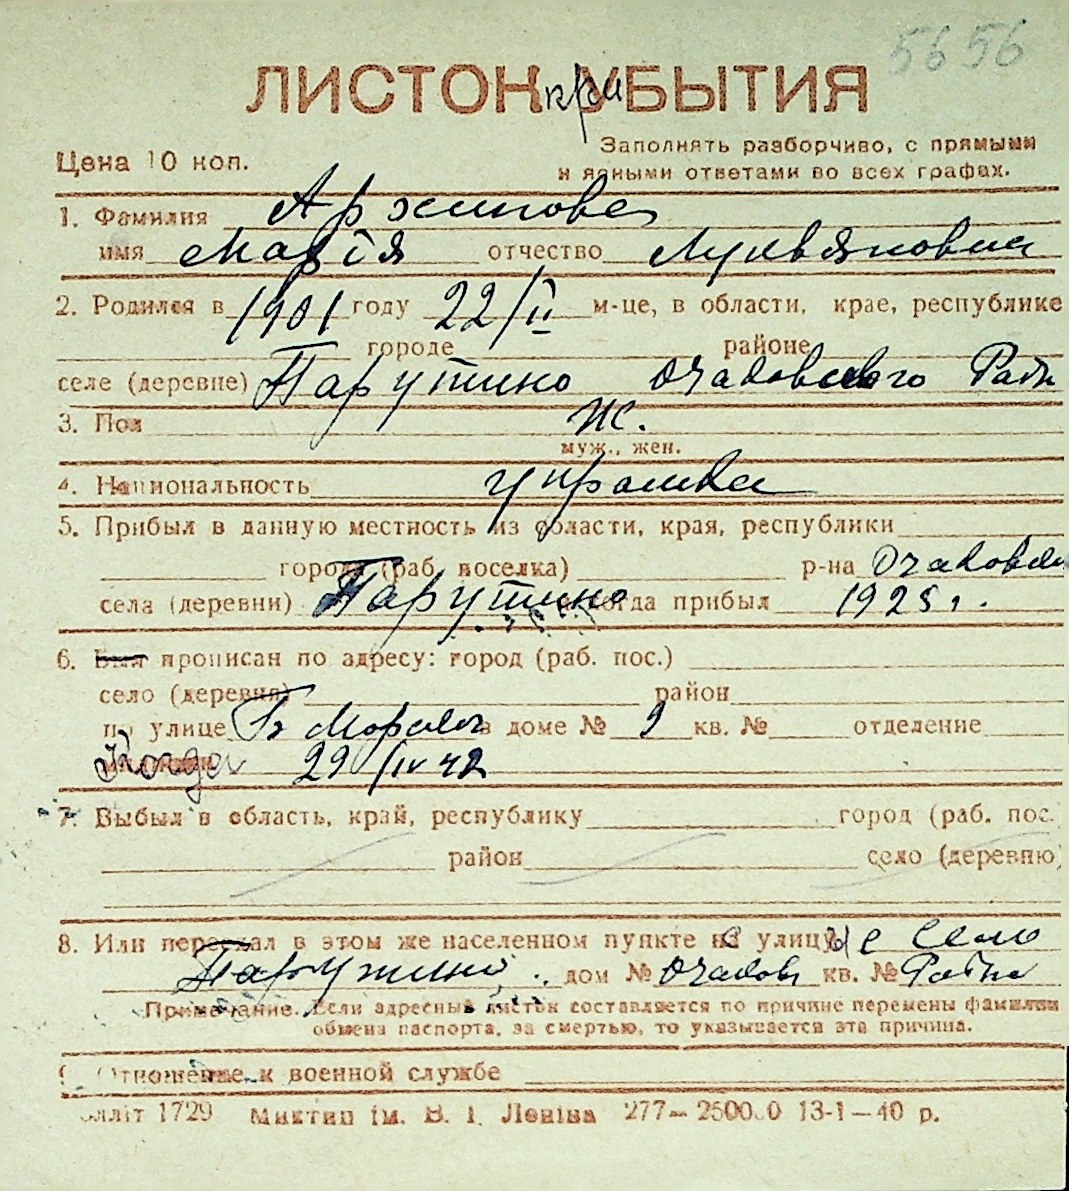 5656
ЛИСТОК УБЫТИЯ
Цена 10 коп.
Заполнять разборчиво, с прямыми
и ясными ответами во всех графах.
1. Фамилия Архипова
имя Марія отчество Лукьяновна
2. Родился в 1901 году 22/II м-це, в области, крае, республике
городе районе
селе (деревне) Парутино Очаковского Райн
3. Пол Ж.
муж., жен.
4. Национальность украинка
5. Прибыл в данную местность из области, края, республики
города (раб. поселка) р-на Очаковск
села (деревни) Парутино когда прибыл 1925 г.
6. Был прописан по адресу: город (раб. пос.)
село (деревня) район
по улице Б Морская в доме № 9 кв. № отделение
Когда 29/IV 42
7. Выбыл в область, край, республику город (раб. пос.
район село (деревню)
8. Или переехал в этом же населенном пункте на улицу село
Парутино дом № Очаков кв. № Райна
Примечание. Если адресный листок составляется по причине перемены фамилии
обмена паспорта, за смертью, то указывается эта причина.
9. Отношение к военной службе
лліт 1729 Миктип ім. В. І. Леніна 277— 250000 13-1—40 р.